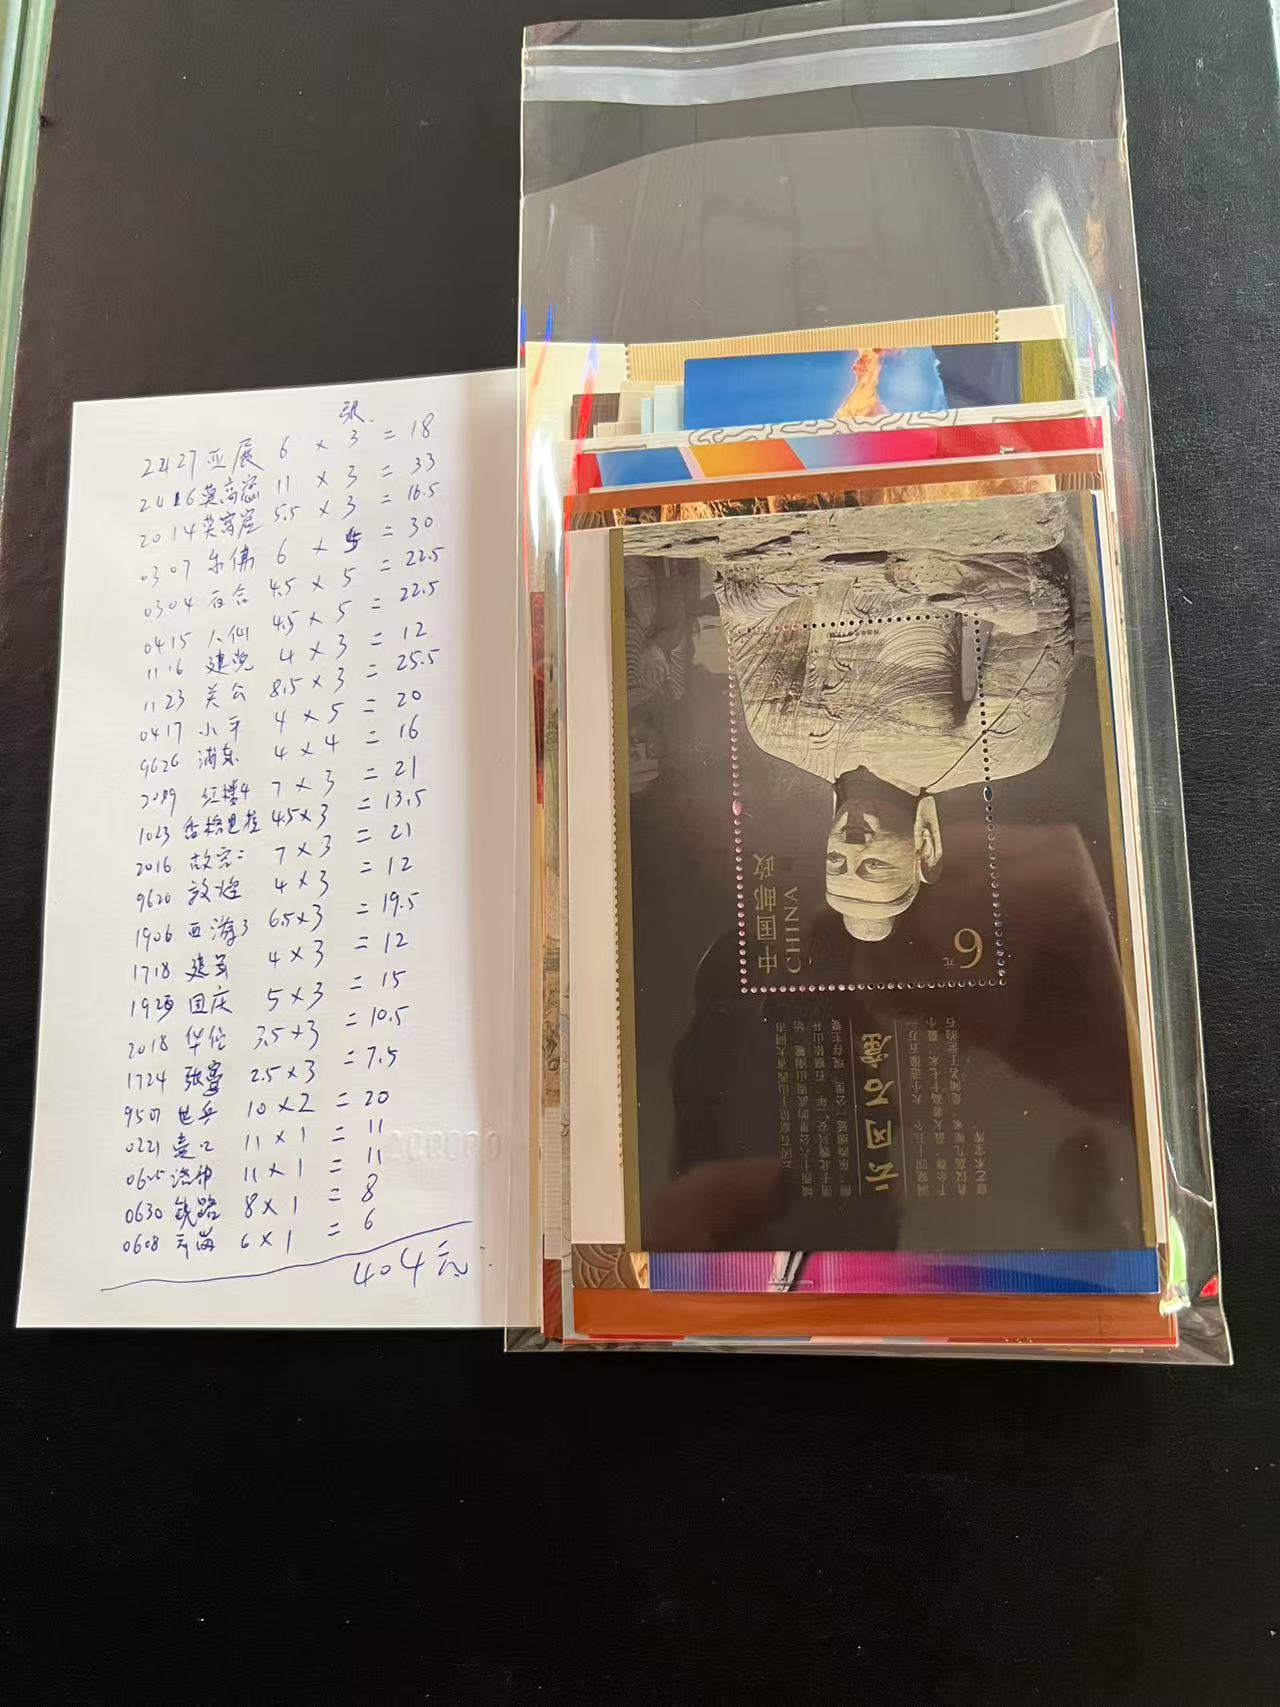 张.
2427 亚展 6 × 3 = 18
2416 莫高窟 11 × 3 = 33
2014 莫高窟 5.5 × 3 = 16.5
0307 乐佛 6 × 5 = 30
0304 百合 4.5 × 5 = 22.5
0415 八仙 4.5 × 5 = 22.5
1116 建党 4 × 3 = 12
1123 关公 8.5 × 3 = 25.5
0417 小平 4 × 5 = 20
9626 浦东 4 × 4 = 16
2089 红楼4 7 × 3 = 21
1023 香格里拉 4.5 × 3 = 13.5
2016 故宫二 7 × 3 = 21
9620 敦煌 4 × 3 = 12
1906 西游3 6.5 × 3 = 19.5
1718 建军 4 × 3 = 12
国庆 5 × 3 = 15
2018 华佗 3.5 × 3 = 10.5
1724 张骞 2.5 × 3 = 7.5
10 × 2 = 20
0221 壶口 11 × 1 = 11
0625 洛神 11 × 1 = 11
0630 铁路 8 × 1 = 8
0608 云岗 6 × 1 = 6
404元
中国邮政
CHINA
6元
云冈石窟